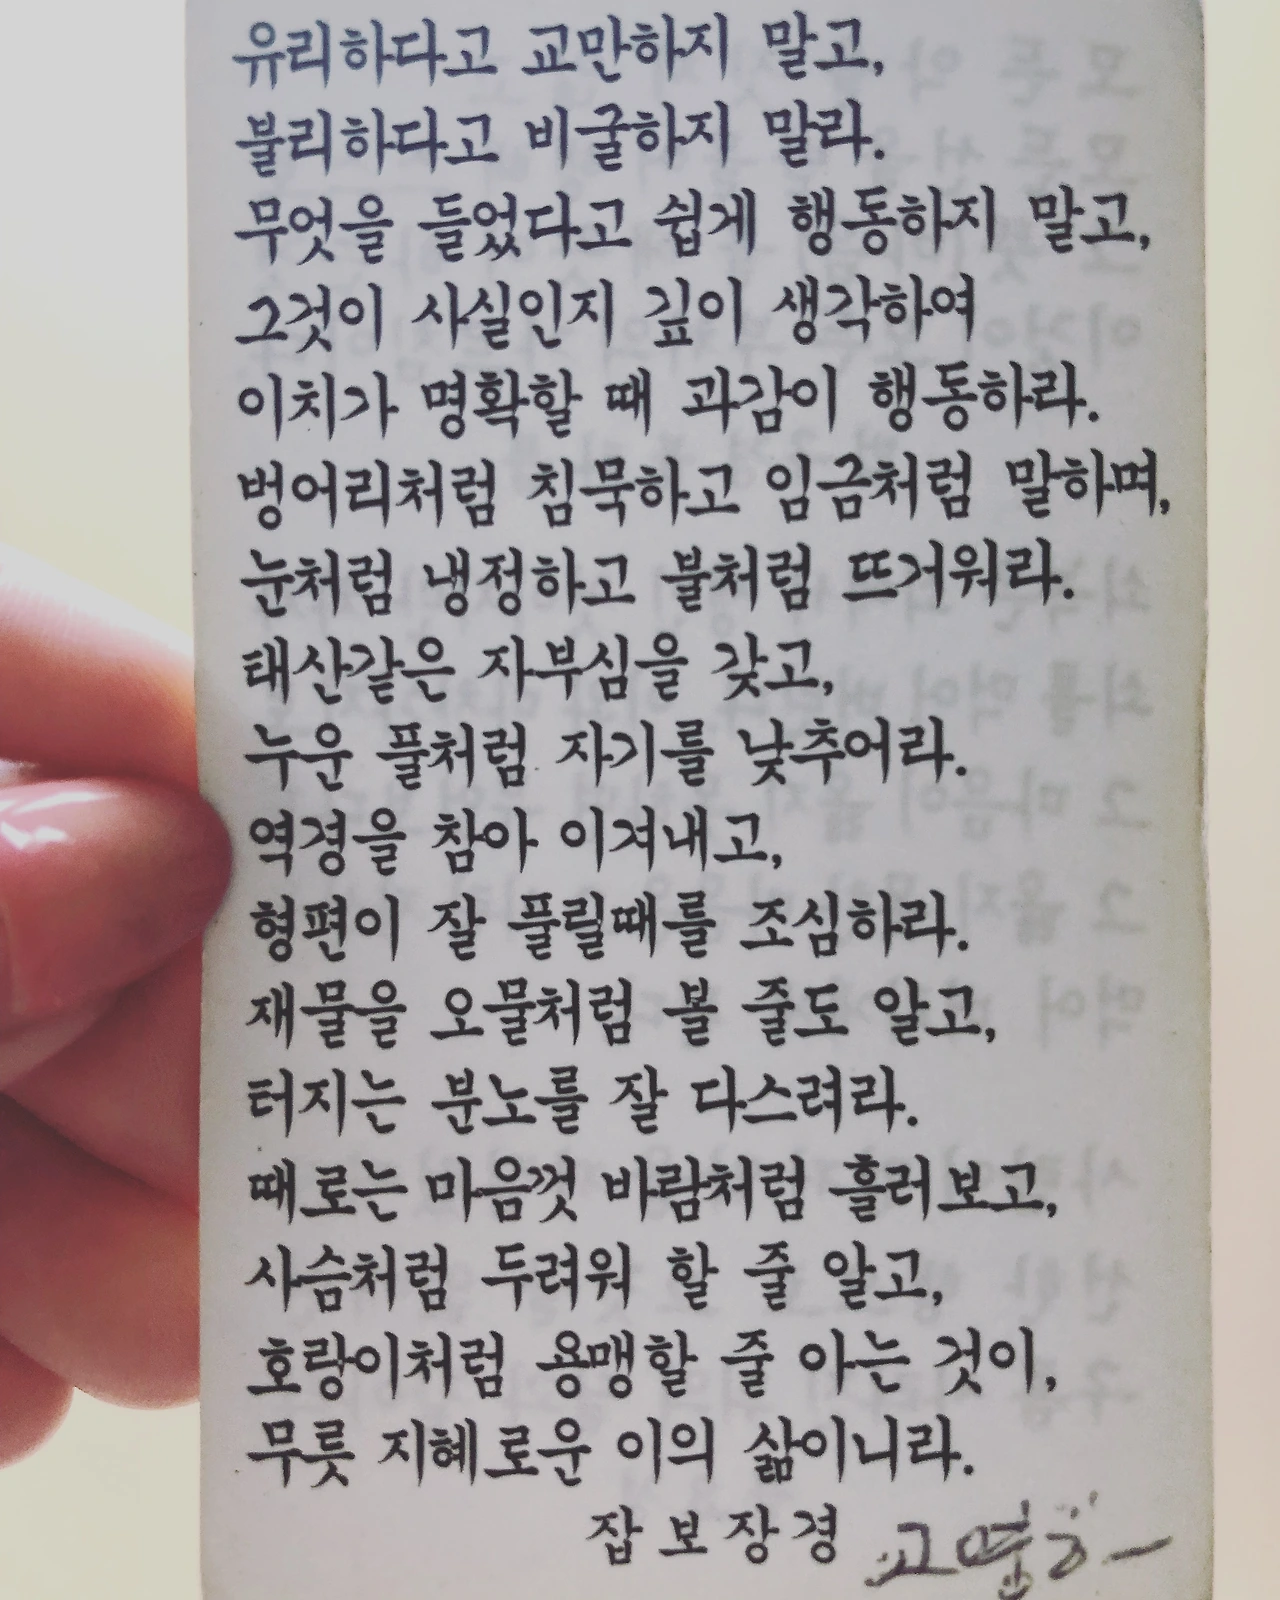 유리하다고 교만하지 말고,
불리하다고 비굴하지 말라.
무엇을 들었다고 쉽게 행동하지 말고,
그것이 사실인지 깊이 생각하여
이치가 명확할 때 과감이 행동하라.
벙어리처럼 침묵하고 임금처럼 말하며,
눈처럼 냉정하고 불처럼 뜨거워라.
태산같은 자부심을 갖고,
누운 풀처럼 자기를 낮추어라.
역경을 참아 이겨내고,
형편이 잘 풀릴때를 조심하라.
재물을 오물처럼 볼 줄도 알고,
터지는 분노를 잘 다스려라.
때로는 마음껏 바람처럼 흘러보고,
사슴처럼 두려워 할 줄 알고,
호랑이처럼 용맹할 줄 아는 것이,
무릇 지혜로운 이의 삶이니라.
잡보장경